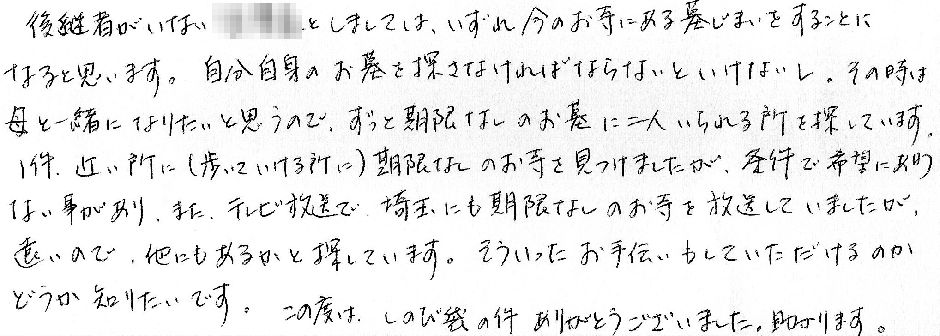 後継者がいない としましては、いずれ今のお寺にある墓じまいをすることに
なると思います。自分自身のお墓を探さなければならないといけないし、その時は
母と一緒になりたいと思うので、ずっと期限なしのお墓に二人いられる所を探しています。
1件、近い所に(歩いていける所に)期限なしのお寺を見つけましたが、条件で希望にあわ
ない事があり、また、テレビ放送で、埼玉にも期限なしのお寺を放送していましたが、
遠いので、他にもあるかと探しています。そういったお手伝いもしていただけるのか
どうか知りたいです。この度は、しのび袋の件ありがとうございました。助かります。